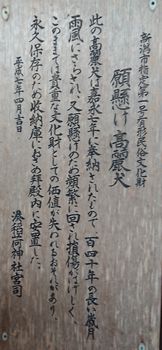 新潟市指定第一号有形民俗文化財
願懸け高麗犬
此の高麗犬は嘉永七年に奉納されたもので、百四十年の長い歳月
雨風にさらされ、又願懸けのため頻繁に回され損傷がはげしく、
このままでは貴重な文化財としての価値が失われるおそれがあり
永久保存のため収納庫におさめ拝殿内に安置した。
平成七年四月吉日
湊稲荷神社宮司